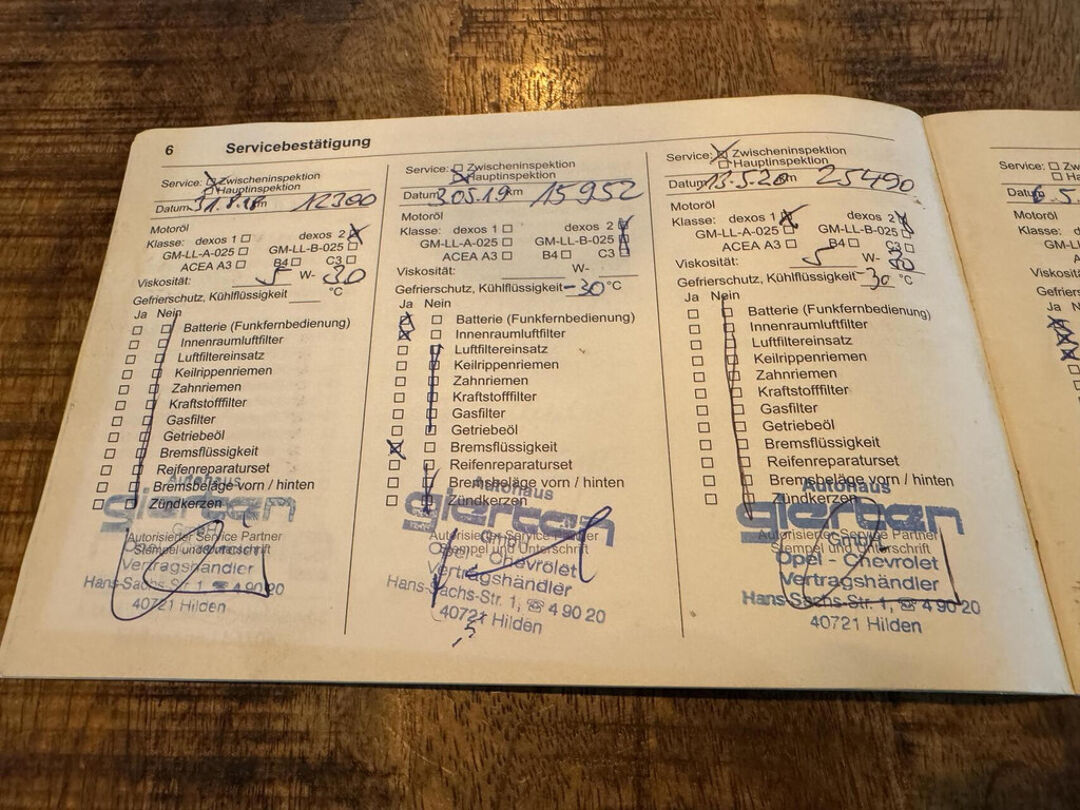 6 Servicebestätigung
Service: Zwischeninspektion
Hauptinspektion
Datum 31.8.18 km 12300
Motoröl
Klasse: dexos 1 dexos 2
GM-LL-A-025 GM-LL-B-025
ACEA A3 B4 C3
Viskosität: 5 W- 30
Gefrierschutz, Kühlflüssigkeit °C
Ja Nein
Batterie (Funkfernbedienung)
Innenraumluftfilter
Luftfiltereinsatz
Keilrippenriemen
Zahnriemen
Kraftstofffilter
Gasfilter
Getriebeöl
Bremsflüssigkeit
Reifenreparaturset
Bremsbeläge vorn / hinten
Zündkerzen
Autohaus
gierten
GmbH
Autorisierter Service Partner
Stempel und Unterschrift
Vertragshändler
Hans-Sachs-Str. 1, ☎ 4 90 20
40721 Hilden
Service: Zwischeninspektion
Hauptinspektion
Datum 305.19 km 15952
Motoröl
Klasse: dexos 1 dexos 2
GM-LL-A-025 GM-LL-B-025
ACEA A3 B4 C3
Viskosität: W-
Gefrierschutz, Kühlflüssigkeit -30 °C
Ja Nein
Batterie (Funkfernbedienung)
Innenraumluftfilter
Luftfiltereinsatz
Keilrippenriemen
Zahnriemen
Kraftstofffilter
Gasfilter
Getriebeöl
Bremsflüssigkeit
Reifenreparaturset
Bremsbeläge vorn / hinten
Zündkerzen
Autohaus
gierten
Autorisierter Service Partner
GmbH
Stempel und Unterschrift
Opel - Chevrolet
Vertragshändler
Hans-Sachs-Str. 1, ☎ 4 90 20
40721 Hilden
Service: Zwischeninspektion
Hauptinspektion
Datum 13.5.20 km 25490
Motoröl
Klasse: dexos 1 dexos 2
GM-LL-A-025 GM-LL-B-025
ACEA A3 B4 C3
Viskosität: 5 W- 30
Gefrierschutz, Kühlflüssigkeit -30 °C
Ja Nein
Batterie (Funkfernbedienung)
Innenraumluftfilter
Luftfiltereinsatz
Keilrippenriemen
Zahnriemen
Kraftstofffilter
Gasfilter
Getriebeöl
Bremsflüssigkeit
Reifenreparaturset
Bremsbeläge vorn / hinten
Zündkerzen
Autohaus
gierten
Autorisierter Service Partner
GmbH
Stempel und Unterschrift
Opel - Chevrolet
Vertragshändler
Hans-Sachs-Str. 1, ☎ 4 90 20
40721 Hilden
Service:
Motoröl
Klasse:
Ja